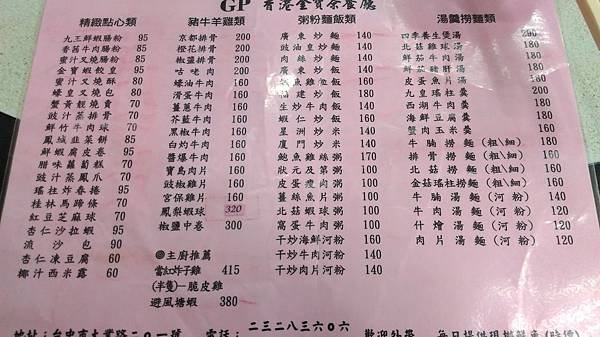 GP 香港金寶茶餐廳
精緻點心類
九王鮮蝦腸粉 95
香茜牛肉腸粉 85
蜜汁叉燒腸粉 85
金寶蝦餃皇 95
蜜汁叉燒酥 80
蠔皇叉燒包 80
蟹黃靚燒賣 70
豉汁蒸排骨 70
鮮竹牛肉球 70
鳳城韮菜餅 85
鮮蝦腐皮卷 95
腊味蘿蔔糕 70
豉汁蒸鳳爪 70
瑤柱炸春捲 95
桂林馬蹄條 70
紅豆芝麻球 70
杏仁沙拉蝦 95
流沙包 90
杏仁凍豆腐 60
椰汁西米露 60
豬牛羊雞類
京都排骨 200
橙花排骨 200
椒鹽排骨 200
咕咾肉 200
蠔油牛肉 160
滑蛋牛肉 160
薑蔥牛肉 160
芥藍牛肉 160
黑椒牛肉 160
白灼牛肉 160
醬爆牛肉 160
寶島肉片 160
豉椒雞片 160
宮保雞片 160
鳳梨蝦球 320
椒鹽中卷 300
◎主廚推薦
當紅炸子雞 415
(半隻)—脆皮雞
避風塘蝦 380
粥粉麵飯類
廣東炒麵 140
豉油皇炒麵 140
肉絲炒麵 140
魚雞炒飯 140
福建炒飯 140
生炒牛肉飯 140
蝦仁炒飯 160
星洲炒米 140
廈門炒米 140
鮑魚雞絲粥 170
狀元及第粥 140
皮蛋瘦肉粥 140
薑絲魚片粥 140
北菇蝦球粥 140
窩蛋牛肉粥 140
干炒海鮮河粉 160
干炒牛肉河粉 140
干炒肉片河粉 140
湯羹撈麵類
四季養生煲湯 290
北菇雞球湯 180
鮮茄牛肉湯 180
鮮茄豬肝湯 180
皮蛋魚片湯 180
九皇瑤柱羹 180
西湖牛肉羹 180
海鮮豆腐羹 180
蟹肉玉米羹 180
牛腩撈麵(粗\細) 160
排骨撈麵(粗\細) 160
北菇撈麵(粗\細) 160
金菇瑤柱撈麵(粗\細) 160
牛腩湯麵(河粉) 120
牛肉湯麵(河粉) 120
什燴湯麵(河粉) 120
肉片湯麵(河粉) 120
地址：台中市大業路二○一號 電話：二三二八三六○六 歡迎外帶 每日提供現撈鮮魚(時價)